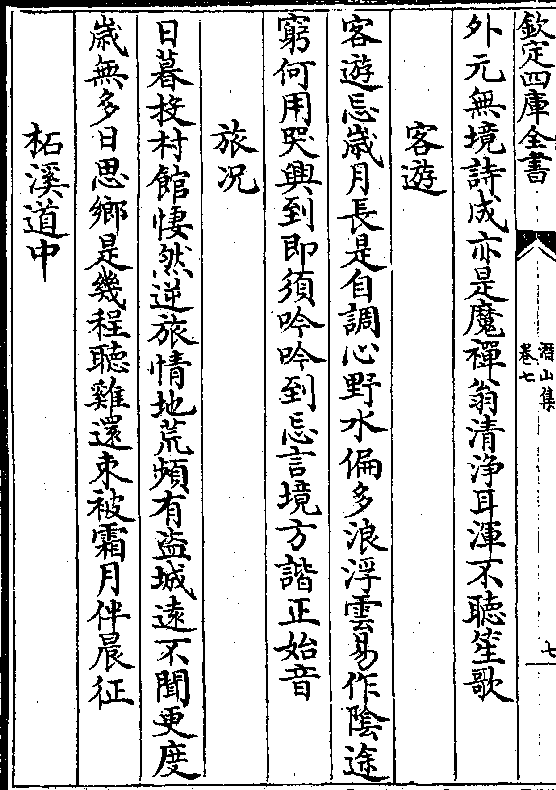 欽定四庫全書
潛山集
卷七
七
外元無境詩成亦是魔禪翁清淨耳渾不聽笙歌
客遊
客遊忘歲月長是自調心野水偏多浪浮雲易作陰途
窮何用哭興到即須吟吟到忘言境方諧正始音
旅况
日暮投村館悽然逆旅情地荒頻有盗城遠不聞更度
歲無多日思鄉是幾程聽雞還束被霜月伴晨征
柘溪道中